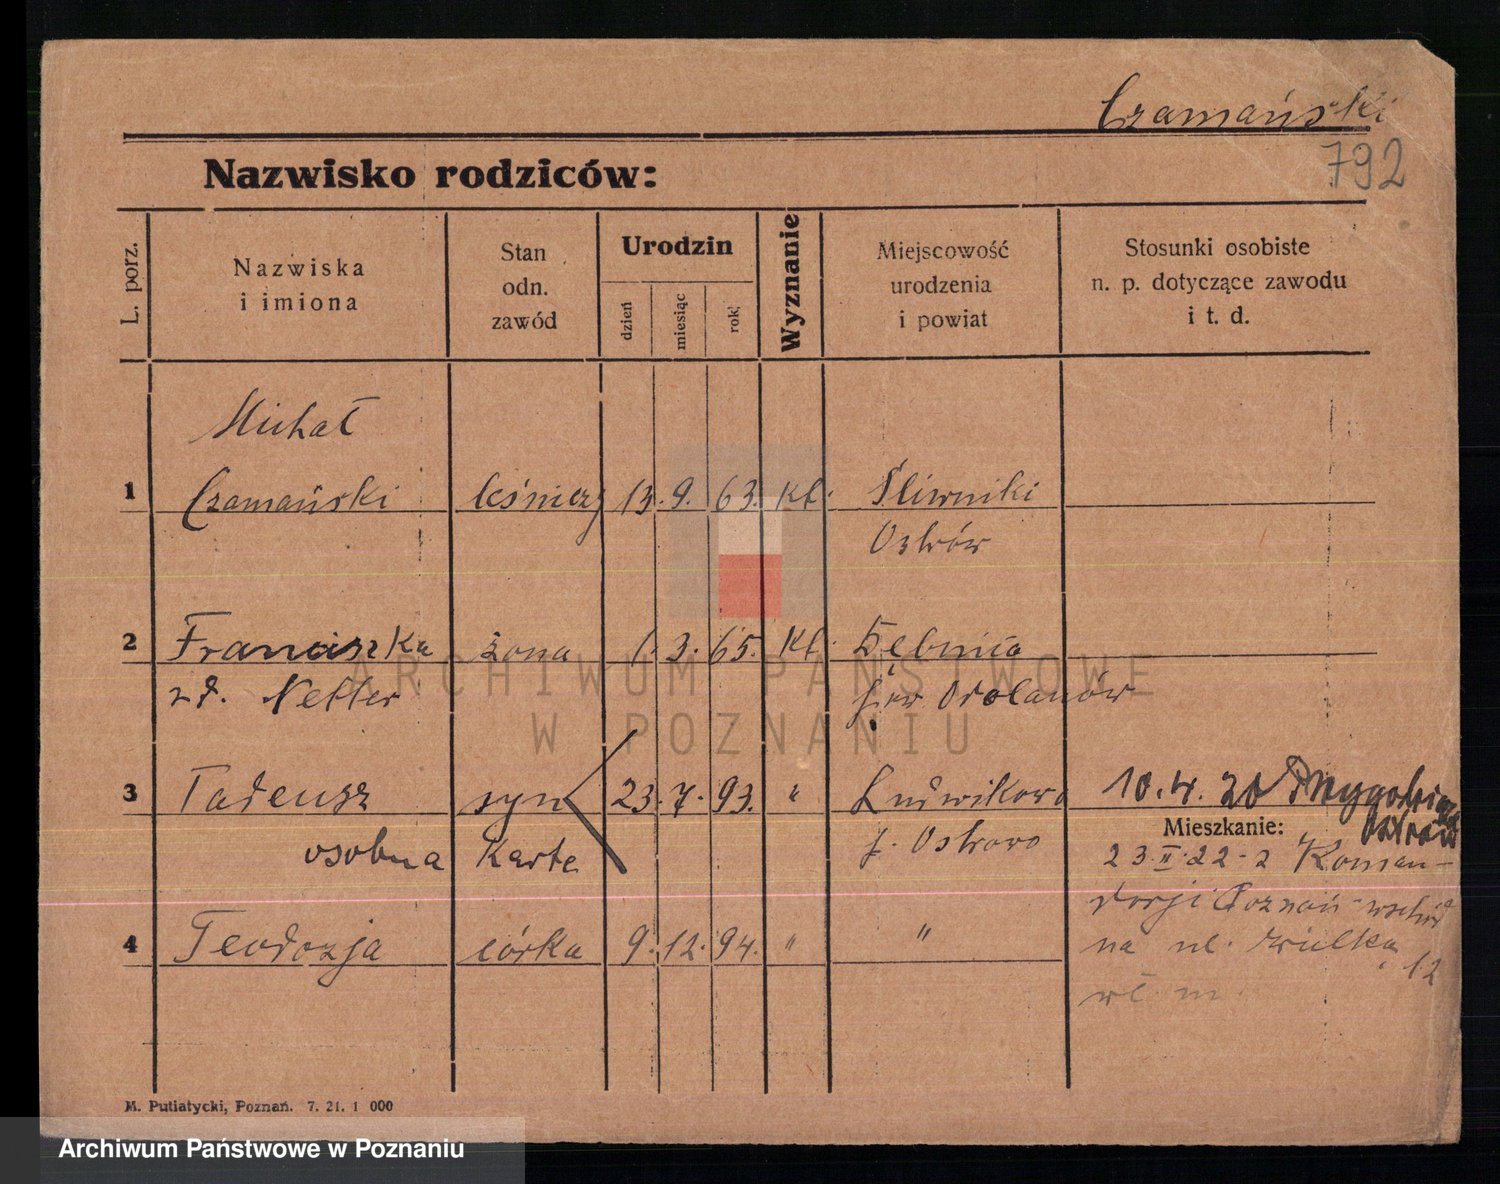 Czamański
792
Nazwisko rodziców:
L. porz.
Nazwiska
i imiona
Stan
odn.
zawód
Urodzin
dzień
miesiąc
rok
Wyznanie
Miejscowość
urodzenia
i powiat
Stosunki osobiste
n. p. dotyczące zawodu
i t. d.
Michał
1 Czamański leśniczy 13. 9. 63. kt. Śliwniki
Ostrów
2 Franciszka żona 1. 3. 65. kt. Dębnica
zd. Netter pow. Odolanów
3 Tadeusz syn 23. 7. 93. " Ludwikowo 10.4.20
Mieszkanie:
osobna karte p. Ostrowo 23.II.22 - z Koman-
dorji Poznań
4 Teodozja córka 9. 12. 94. " " na ul. Wielką 12
M. Putiatycki, Poznań. 7. 21. 1 000
ARCHIWUM PAŃSTWOWE
W POZNANIU
Archiwum Państwowe w Poznaniu